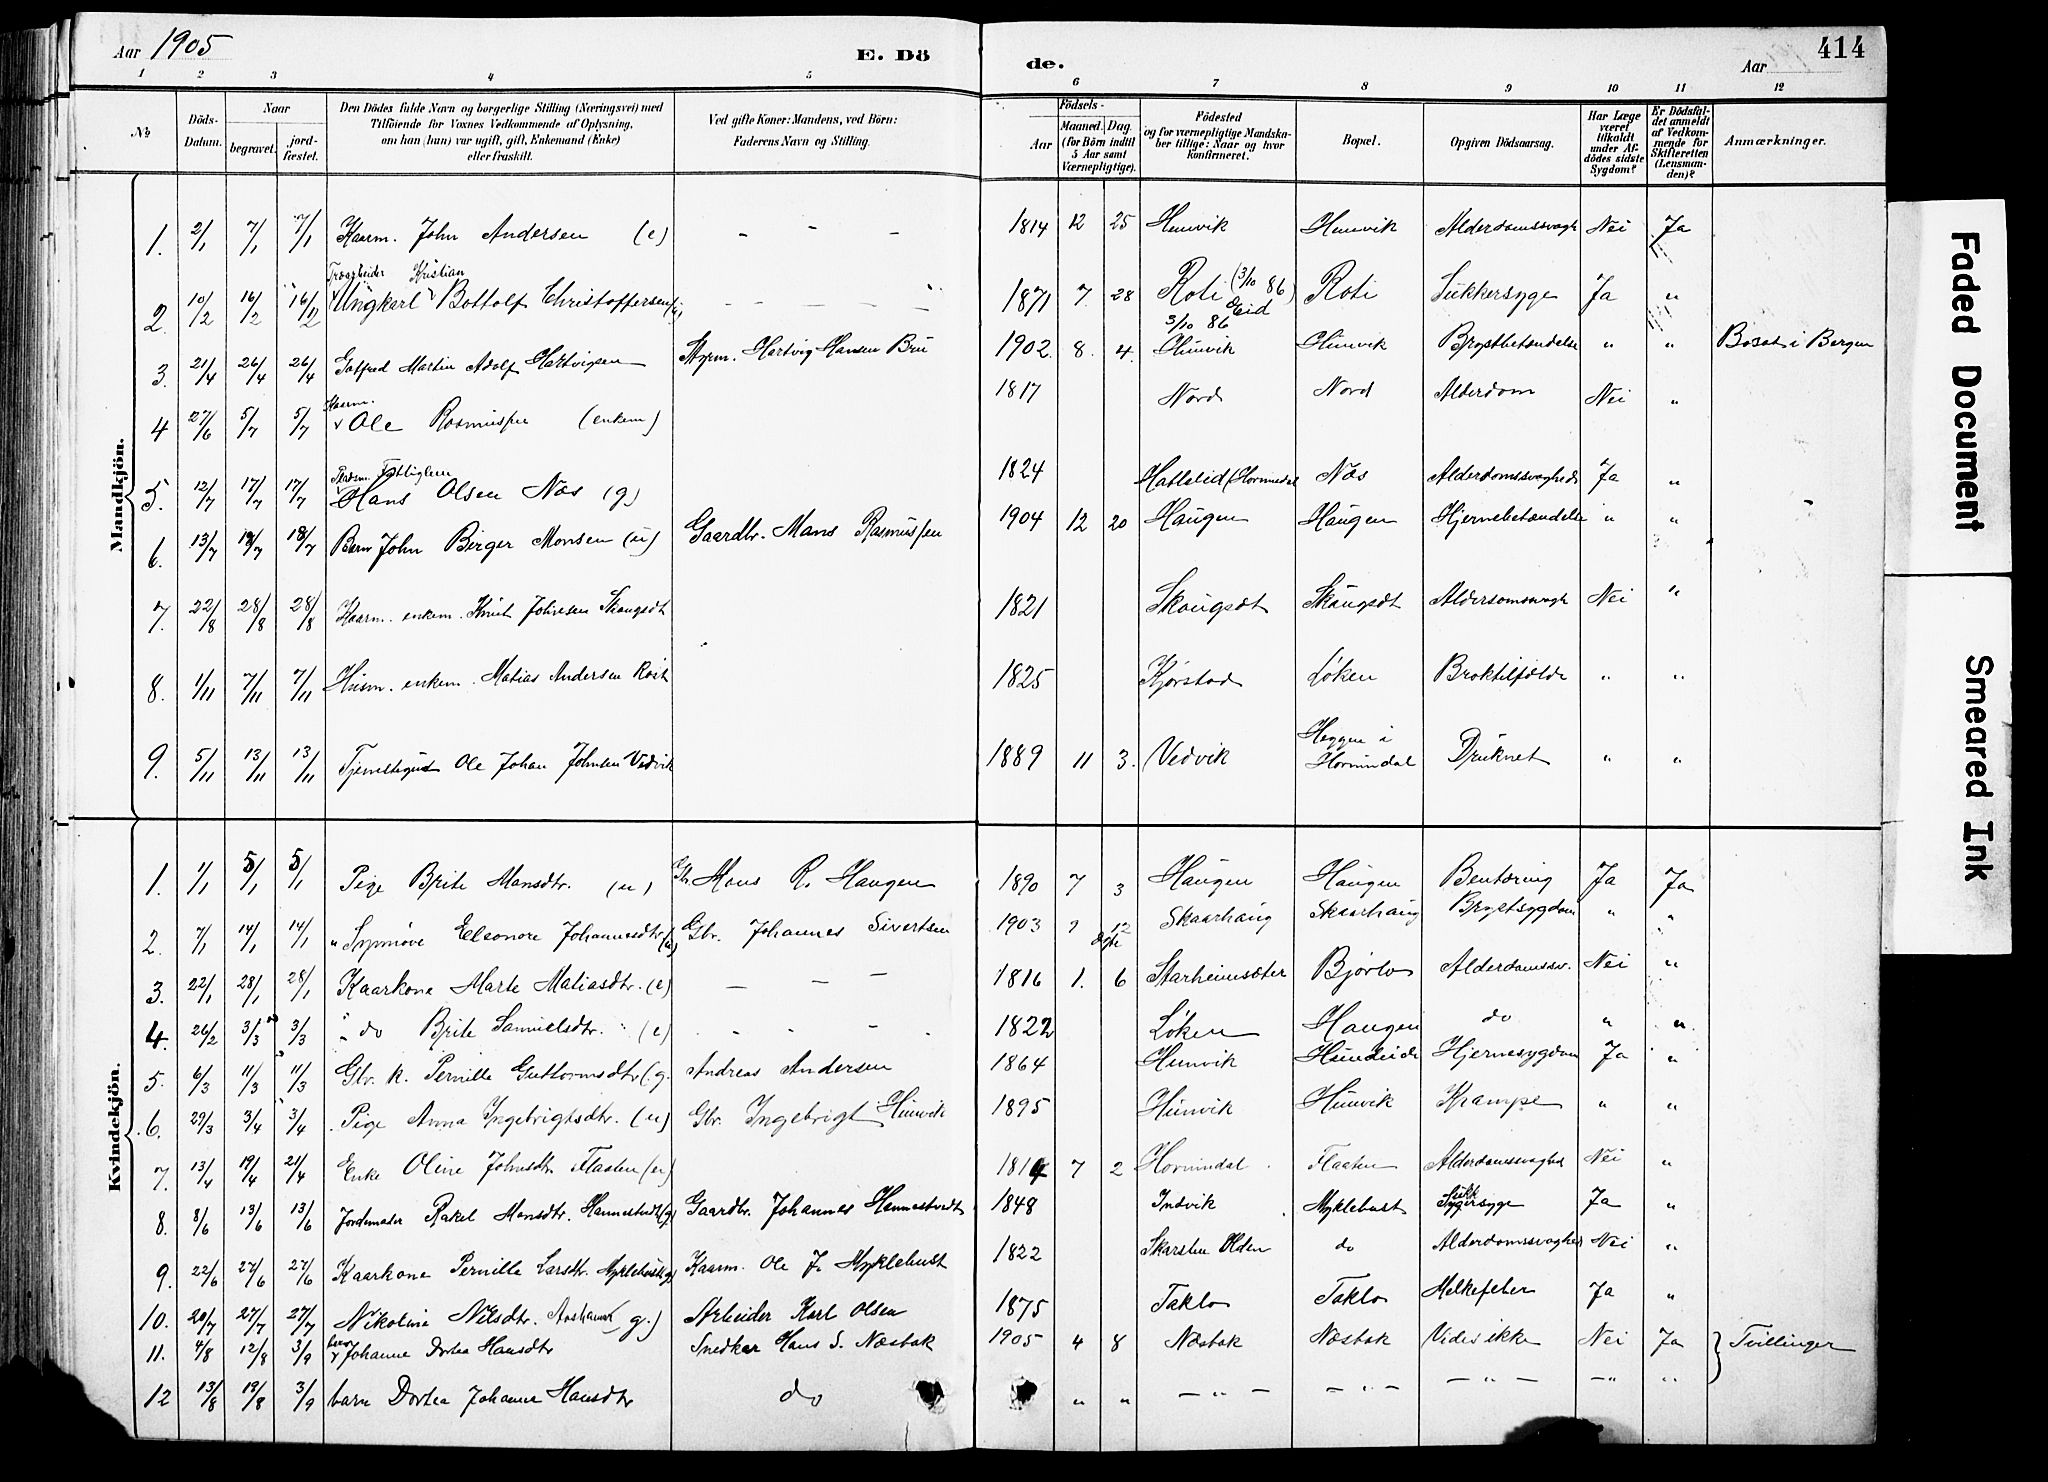 Aar 1905
E. Döde.
Aar
414
1 2 3 4 5 6 7 8 9 10 11 12
No
Döds-Datum.
Naar
begravet.
jordfæstet.
Den Dödes fulde Navn og borgerlige Stilling (Næringsvei) med
Tilföiende for Voxnes Vedkommende af Oplysning,
om han (hun) var ugift, gift, Enkemand (Enke)
eller fraskilt.
Ved gifte Koner: Mandens, ved Börn:
Faderens Navn og Stilling.
Födsels-
Aar
Maaned. Dag.
(for Börn indtil
5 Aar samt
Værnepligtige).
Födested
og for værnepligtige Mandska-
ber tillige: Naar og hvor
konfirmeret.
Bopæl.
Opgiven Dödsaarsag.
Har Læge
været
tilkaldt
under Af-
dödes sidste
Sygdom?
Er Dödsfal-
det anmeldt
af Vedkom-
mende for
Skifteretten
(Lensman-
den)?
Anmærkninger.
Mandkjön.
1. 2/1 7/1 7/1 Kaarm. John Andersen (e) - - - 1814 12 25 Hunvik Hunvik Alderdomssvagh Nei Ja
Træarbeider Kristian
2. 10/2 16/2 16/2 Ungkarl Bottolf Christoffersen (u) - - - 1871 7. 28 Roti (3/10 86 Eid) Roti Sukkersyge Ja "
3/10 86
3. 21/4 26/4 26/4 Gotfred Martin Adolf Hartvigsen Styrm. Hartvig Hansen Bru 1902. 8. 4. Hunvik Hunvik Brystbetændelse " " Bosat i Bergen
Kaarm.
4 27/6 5/7 5/7 Ole Rasmussen (enkem) 1817 Nord Nord Alderdom Nei "
Fattiglem
5. 12/7 17/7 17/7 Hans Olsen Nos (g) 1824 Hatlelid (Hornindal Nos Alderdomssvaghed Ja "
6. 13/7 18/7 18/7 Barn John Berger Monsen (u) Gaardbr. Mons Rasmussen 1904 12 20 Haugen Haugen Hjernebetændelse " "
7. 22/8 28/8 28/8 Kaarm. enkem. Knut Johnsen Skaugsdt 1821 Skaugsdt Skaugsdt Aldersomsvagh Nei "
8. 1/11 7/11 7/11 Husm. enkem. Matias Andersen Roti 1825 Kjørstad Løken Broktilfælde " "
9. 5/11 13/11 13/11 Tjenestegut Ole Johan Johnsen Vedvik 1889 11 3. Vedvik Heggen i Hornindal Druknet " "
Kvindekjön.
1. 1/1 5/1 5/1 Pige Brite Monsdtr. (u) Gbr. Mons R. Haugen 1890 7 3 Haugen Haugen Bentæring Ja Ja
2. 7/1 14/1 14/1 " Synnøve Eleonore Johannesdtr (u) Gbr. Johannes Sivertsen 1903 ? 12 Skaarhaug Skaarhaug Brystsygdom " "
3. 22/1 28/1 28/1 Kaarkone Marte Matiasdtr. (e) - - - 1816 1. 6 Starheimsæter Bjørlo Alderdomssv. Nei "
4. 26/2 3/3 3/3 " do Brite Samuelsdtr. (e) - - - 1822 Løken Haugen do " "
5. 6/3 11/3 11/3 Gbr. k. Pernille Guttormsdtr (g. Andreas Andersen 1864 Hunvik Hundeide Hjernesygdom Ja "
6. 29/3 3/4 3/4 Pige Anna Ingebrigtsdtr. (u) Gbr. Ingebrigt Hunvik 1895 Hunvik Hunvik Krampe " "
7. 13/4 19/4 21/4 Enke Oline Johnsdtr Flaaten (e) 1814 7 2 Hornindal Flaaten Alderdomssvaghed Nei "
8. 8/6 13/6 13/6 Jordemoder Rakel Monsdtr. Hennestvedt (g) Gaardbr. Johannes Hennestvedt 1848 Indvik Myklebust Sukkersyge Ja "
9. 22/6 27/6 27/6 Kaarkone Pernille Larsdtr. Myklebust (g) Kaarm. Ole J. Myklebust 1822 Skarsten Olden do Alderdomssvaghed Nei "
10. 20/7 27/7 27/7 Nikoline Nilsdtr. g.) Arbeider Karl Olsen 1875 Taklo Taklo Melkefeber Ja "
barn
11. 4/8 12/8 3/9 Johanne Dortea Hansdtr Snedker Hans S. Næsbak 1905 4 8 Næsbak Næsbak Vides ikke Nei Ja } Tvillinger
12 13/8 19/8 3/9 barn Dortea Johanne Hansdtr do " " - " - - " - - " - - " "
Faded Document
Smeared Ink